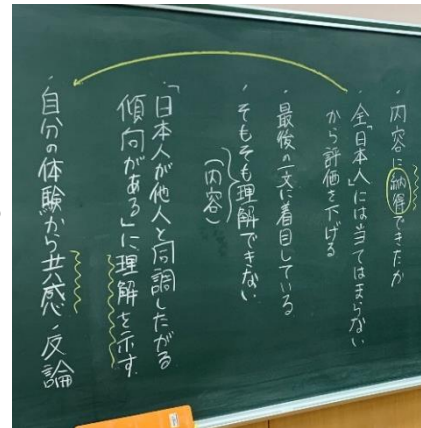 ・内容に納得できたか
・全「日本人」には当てはまらない
から評価を下げる
・最後の一文に着目している
・そもそも理解できない
(内容)
「日本人が他人と同調したがる
傾向がある」に理解を示す
・自分の体験から共感・反論